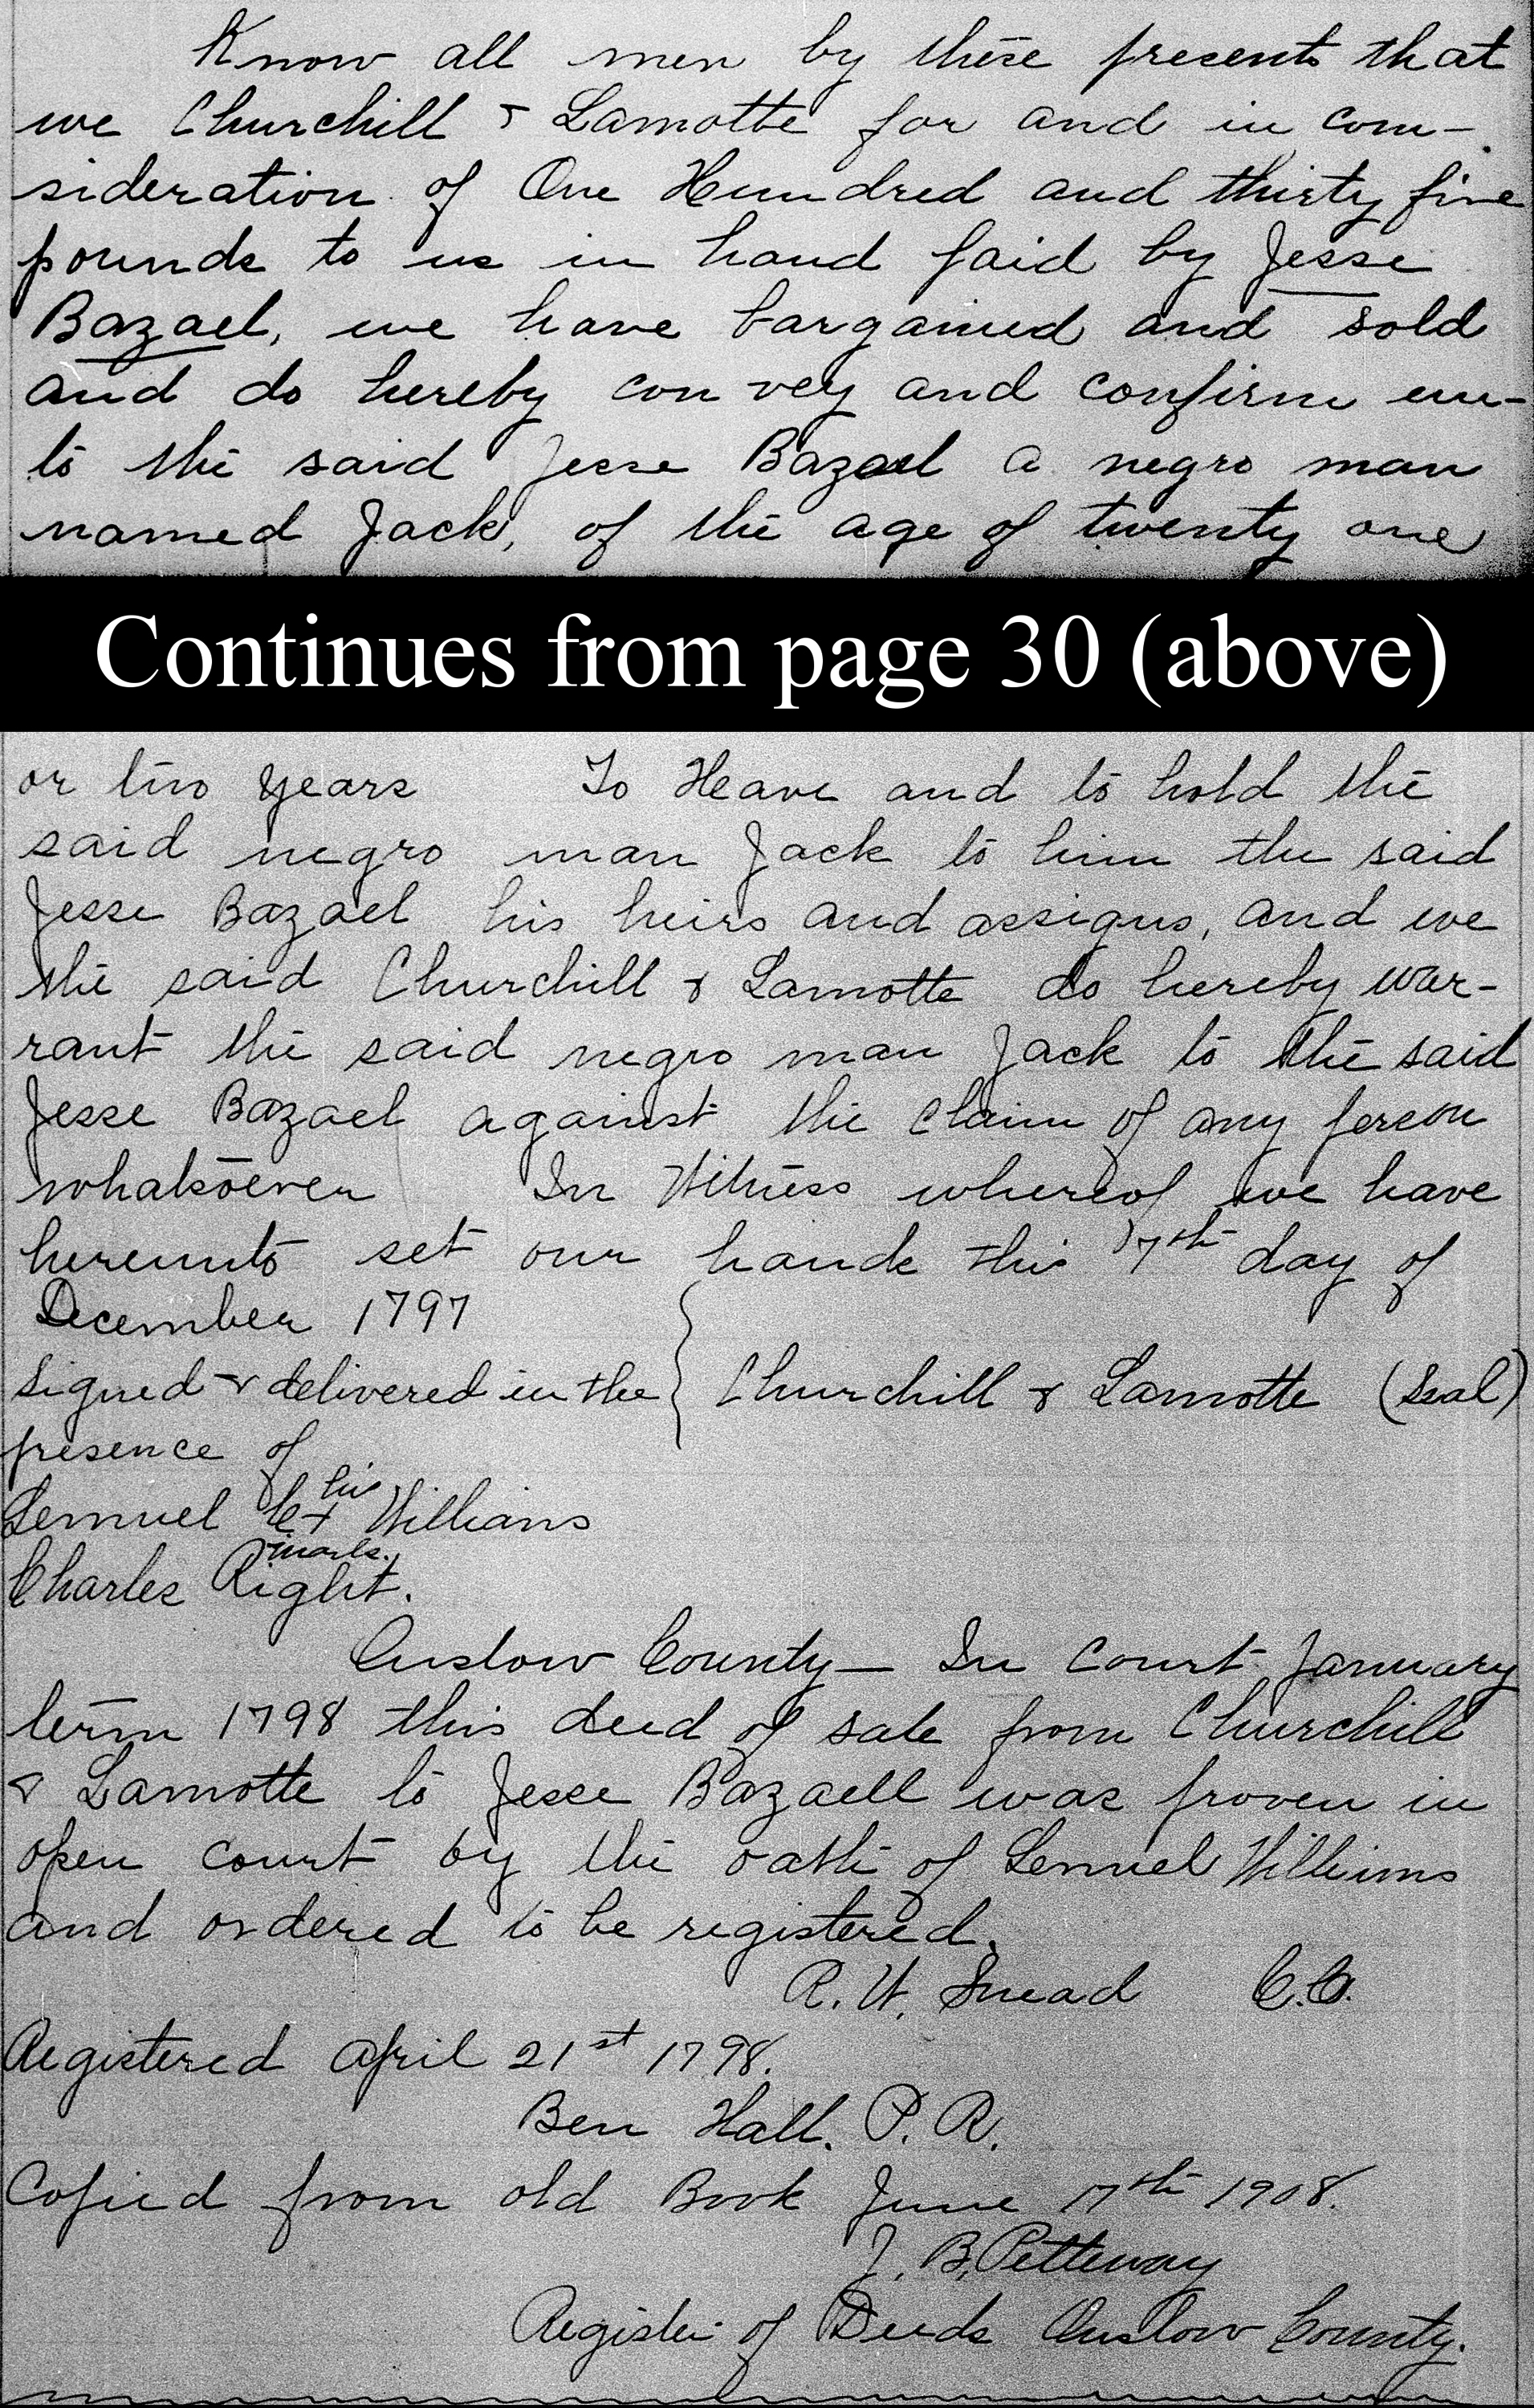 Know all men by these presents that
we Churchill & Lamotte for and in con-
sideration of One Hundred and thirty five
pounds to us in hand paid by Jesse
Bazael, we have bargained and sold
and do hereby con vey and confirm un-
to the said Jesse Bazael a negro man
named Jack, of the age of twenty one
Continues from page 30 (above)
or two years To Heave and to hold the
said negro man Jack to him the said
Jesse Bazael his heirs and assigns, and we
the said Churchill & Lamotte do hereby war-
rant the said negro man Jack to the said
Jesse Bazael against the claim of any person
whatsoever In Witness whereof we have
hereunto set our hands this 7th day of
December 1797
Signed & delivered in the } Churchill & Lamotte (Seal)
presence of
his
Lemuel X Williams
mark.
Charles Right.
Onslow County— In Court January
term 1798 this deed of sale from Churchill
& Lamotte to Jesse Bazaell was proven in
open court by the oath of Lemuel Williams
and ordered to be registered.
R. W. Snead C.C.
Registered April 21st 1798.
Ben Hall. P. R.
Copied from old Book June 17th 1908.
J. B. Petteway
Register of Deeds Onslow County.